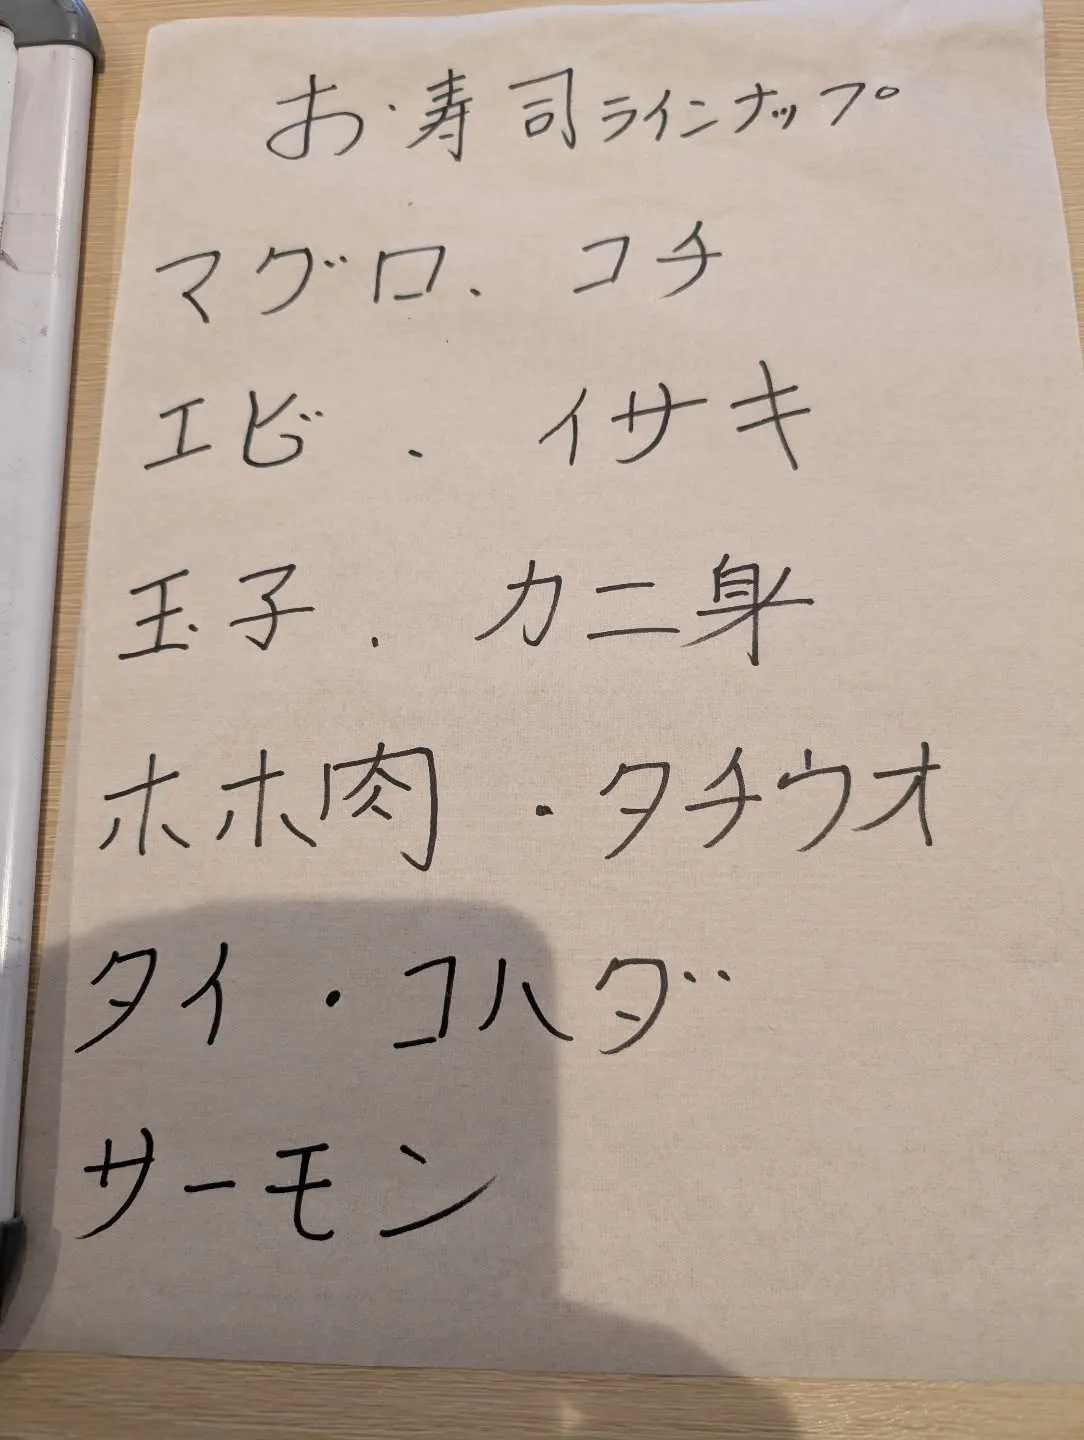 お寿司ラインナップ
マグロ、コチ
エビ・イサキ
玉子・カニ身
ホホ肉・タチウオ
タイ・コハダ
サーモン